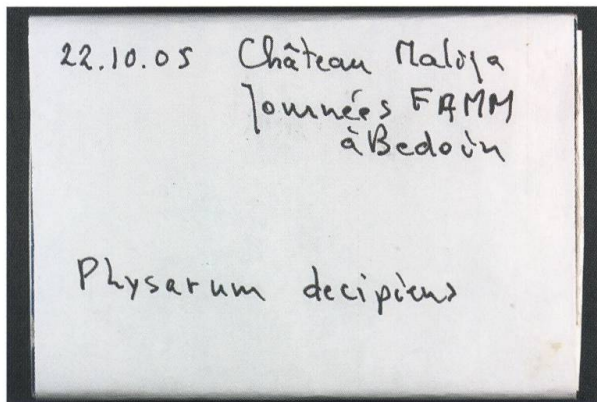 22.10.05 Château Malija
Journées FAMM
à Bedoin
Physarum decipiens